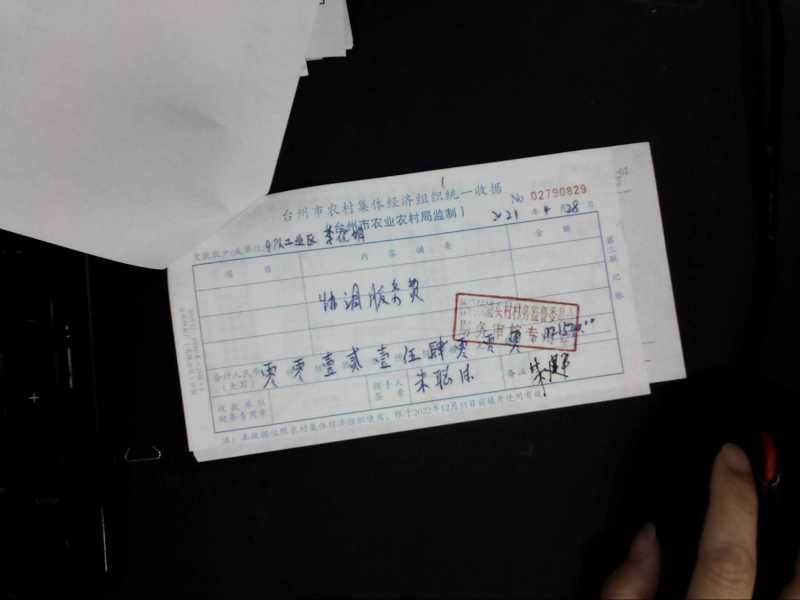 台州市农村集体经济组织统一收据
(台州市农业农村局监制)
No 02790829
2021 年 4 月 28 日
交款农户(或单位)
工业区
项目 内容摘要 金额
协调服务费
合计人民币(大写) 零 零 壹 贰 壹 伍 肆 零 零
收款单位财务专用章
经手人签章
朱聪
备注
第三联 记账
注:本收据仅限农村集体经济组织使用,限于2022年12月31日前填开使用有效